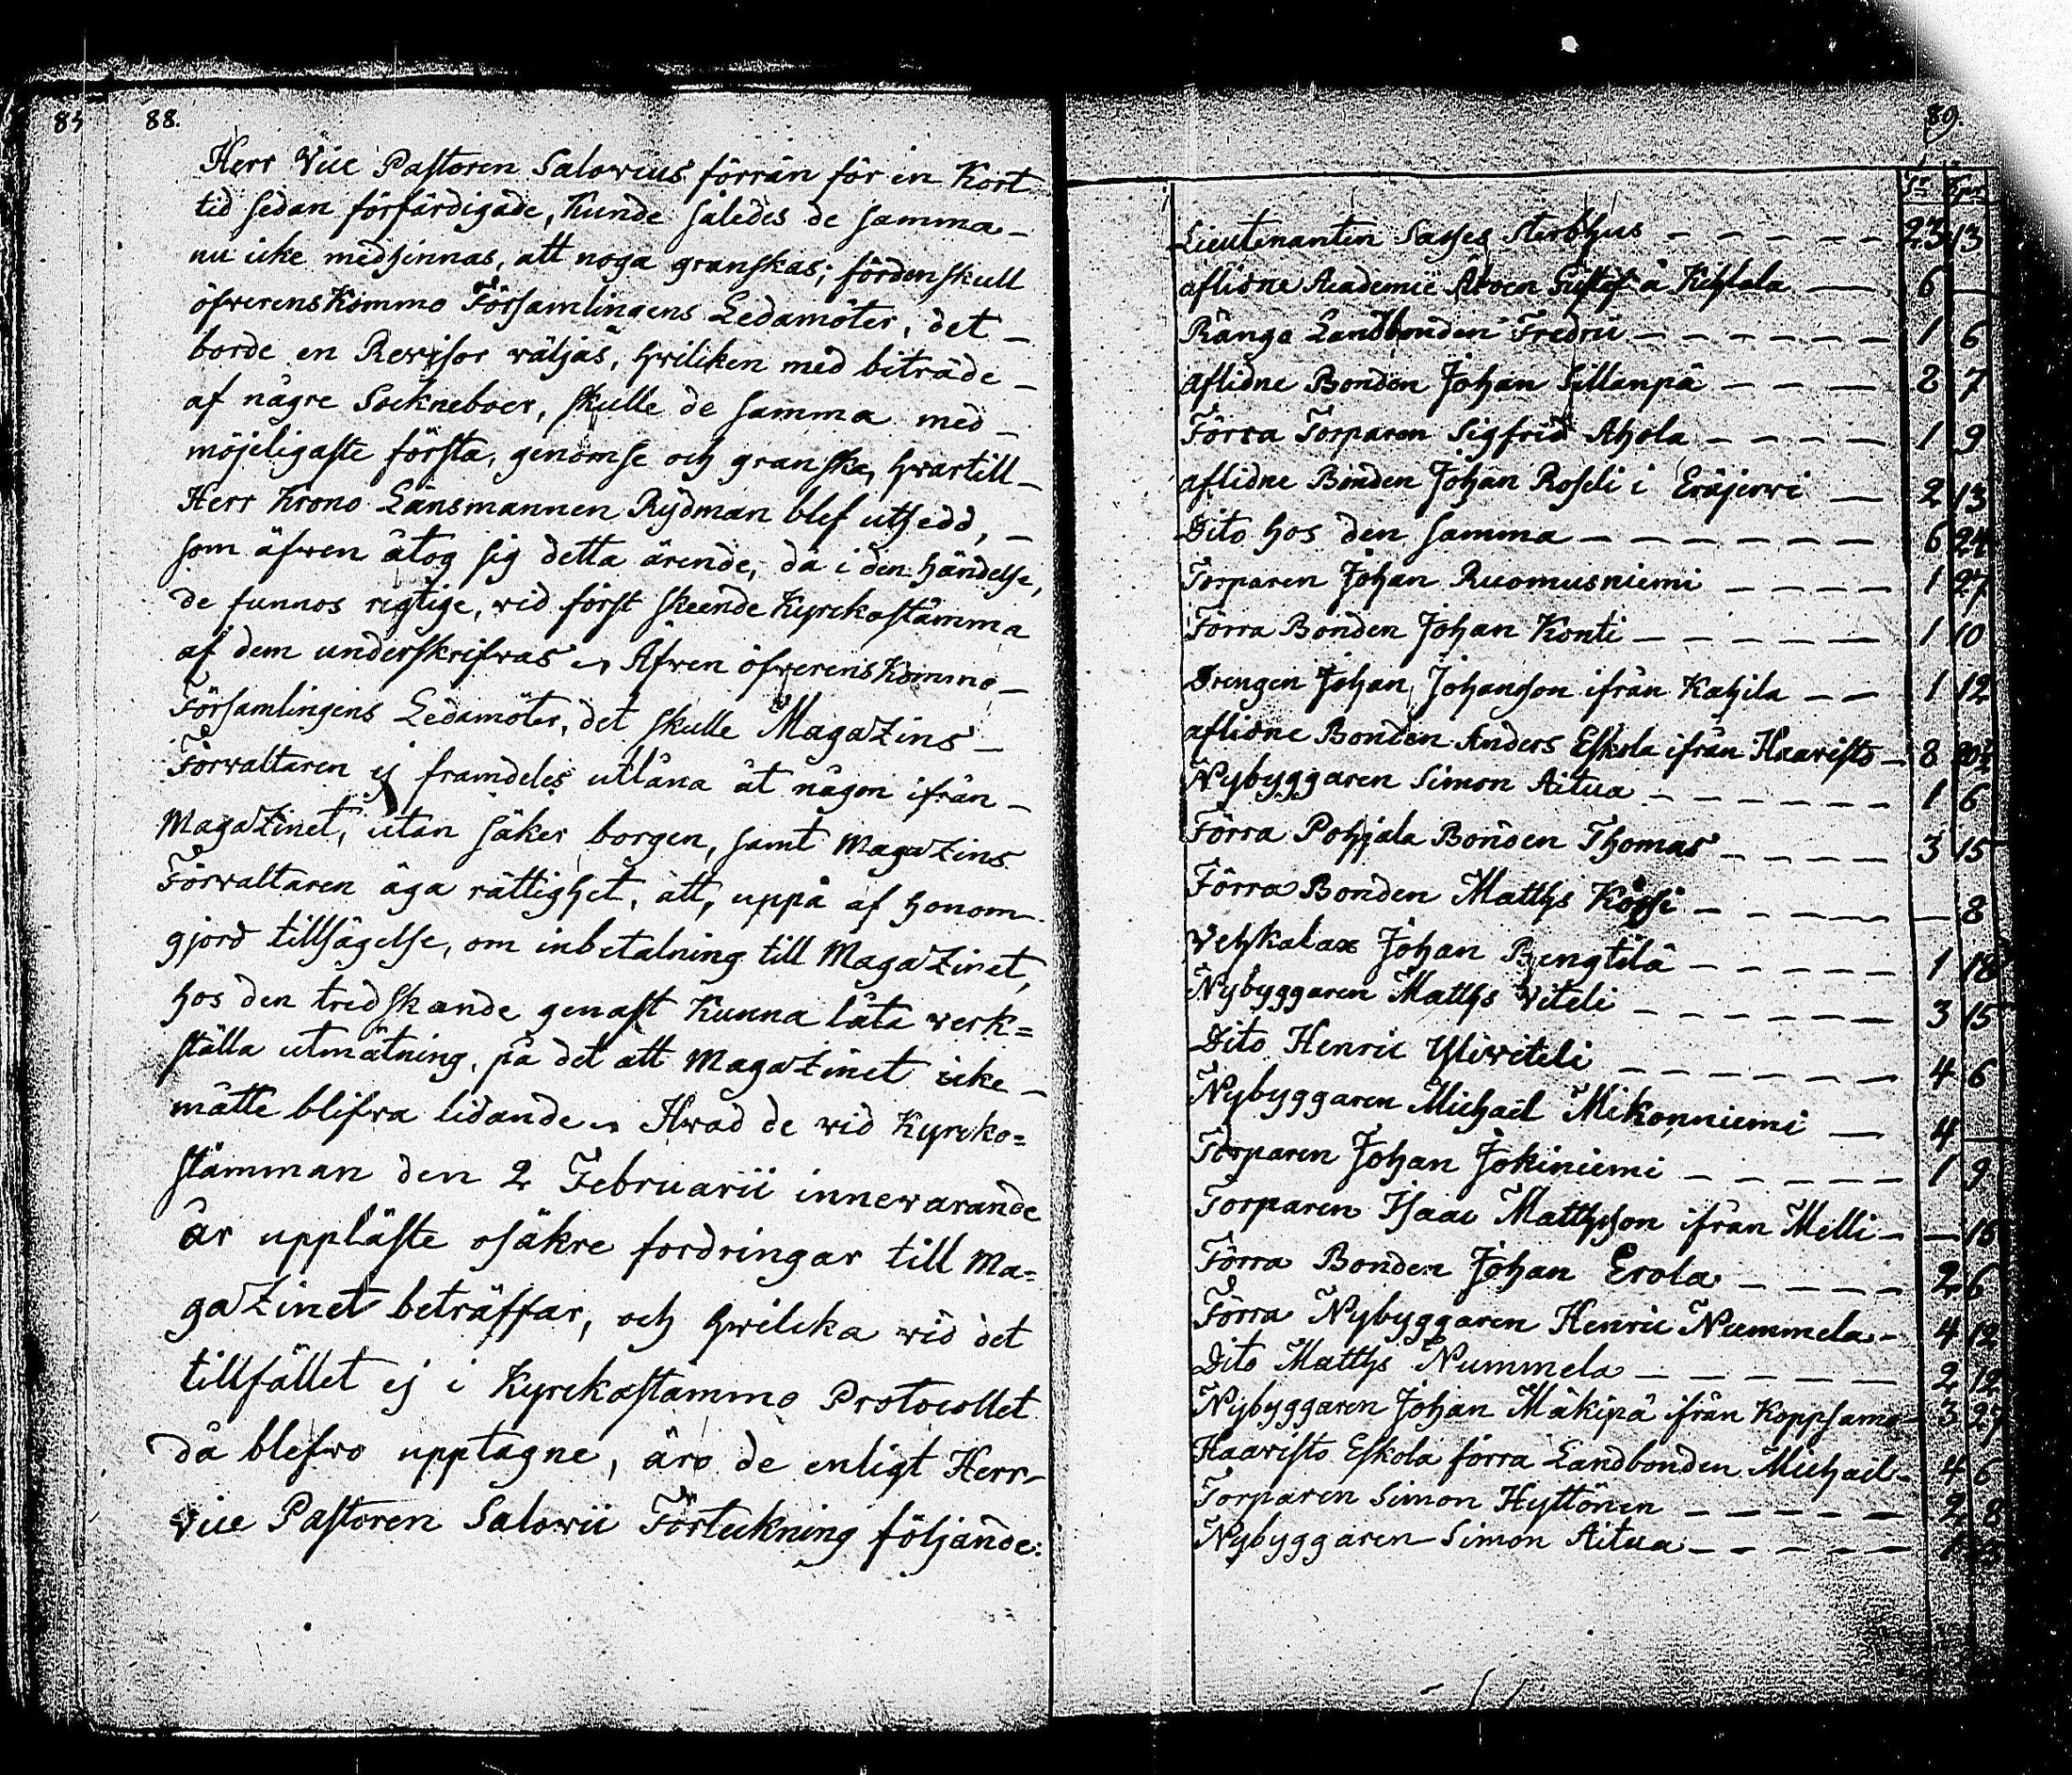 88.
Herr Vice Pastoren Salovius förrän för en Kort
tid sedan förfärdigade, Kunde således de samma
nu icke medhinnas, att noga granskas; fördenskull
öfverensKommo Församlingens Ledamöter, det
borde en Revisor väljas, hvilken med biträde
af någre Sockneboer, skulle de samma med
möjeligaste första, genomse och granska, hvartill
Herr Krono Länsmannen Rydman blef utsedd,
som äfven åtog sig detta ärende, då i den händelse,
de funnos rigtige, vid först skeende Kyrckostämma
af dem underskrifvas. Äfven öfverensKommo
Församlingens Ledamöter, det skulle Magazins
Förvaltaren ej framdeles utlåna åt någon ifrån
Magazinet, utan säker borgen, samt Magazins
Förvaltaren äga rättighet, att, uppå af honom
gjord tillsägelse, om inbetalning till Magazinet,
hos den tredskande genast Kunna låta verk=
ställa utmätning, på det att Magazinet icke
måtte blifva lidande. Hvad de vid Kyrcko=
stämman den 2 Februarii innevarande
år uppläste osäkre fordringar till Ma=
gazinet beträffar, och hvilcka vid det
tillfället ej i Kyrckostämmo Protocollet
då blefvo upptagne, äro de enligt Herr
Vice Pastoren Salovii Förteckning följande:
89.
Lieutenanten Sasses sterbhus 23 13
aflidne Academiæ Åboen Gustaf å Kihlala 6 —
Rånga Landbonden Fredric 1 6
aflidne Bonden Johan Sillanpä 2 7
Förra Torparen Sigfrid Ahola 1 9
aflidne Bonden Johan Roseli i Eräjervi 2 13
Dito hos den samma 6 24
Torparen Johan Ruomusniemi 1 27
Förra Bonden Johan Konti 1 10
Drengen Johan Johansson ifrån Kahila 1 12
aflidne Bonden Anders Eskola ifrån Haaristo 8 20½
Nybyggaren Simon Aitua 1 6
Förra Pohjala Bonden Thomas 3 15
Förra Bonden Matths — 8
Johan Bengtilä 1 18
Nybyggaren Matths Viteli 3 15
Dito Henric Yliviteli 4 6
Nybyggaren Michaël Mikonniemi 4 —
Torparen Johan Jokiniemi 1 9
Torparen Isaac Matthsson ifrån Melli — 18
Förra Bonden Johan Erola 2 6
Förra Nybyggaren Henric Nummela 4 12
Dito Matths Nummela 2 12
Nybyggaren Johan Mäkipä ifrån Koppsamo 3 27
Haaristo Eskola förra Landbonden Michaël 4 6
Torparen Simon Hyttönen 2 8
Nybyggaren Simon Aitua 1